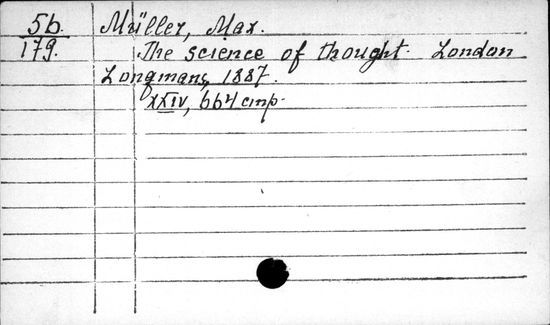 56. Müller, Max.
179. The science of thought. London
Longmans, 1887.
XXIV, 664 стр.